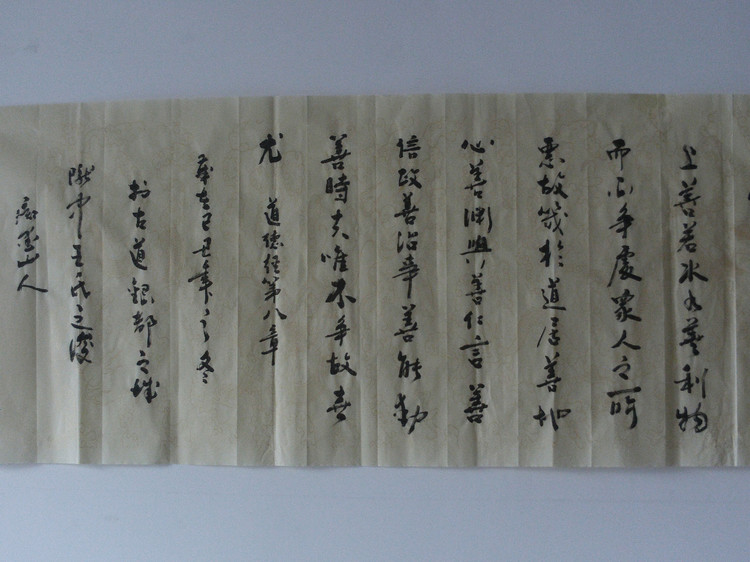 上善若水水善利物
而不争處衆人之所
惡故幾於道居善地
心善淵與善仁言善
信政善治事善能動
善時夫唯不争故無
尤 道德經第八章
歲在己丑年之冬
於古道銀都之城
隴中王氏之後
山人